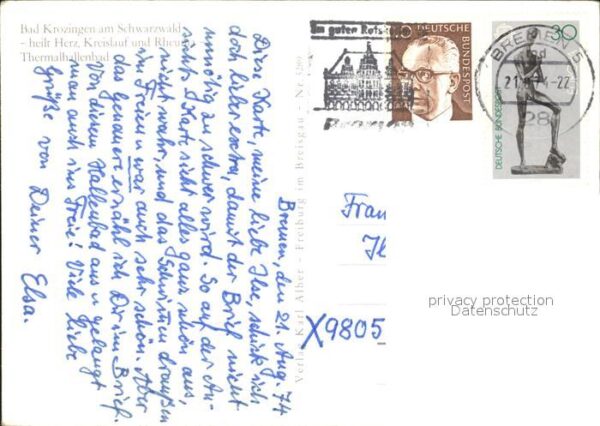 Bad Krozingen am Schwarzwald
- heilt Herz, Kreislauf und Rheuma
Thermalhallenbad
Bremen, den 21. Aug. 74
Diese Karte, meine liebe Ilse, schick ich
doch lieber extra, damit der Brief nicht
unnötig zu schwer wird. So auf der An-
sichtskarte sieht alles ganz schön aus,
nicht wahr, und das Schwimmen draußen
im Freien war auch sehr schön. Aber
das genauere erzähl ich Dir im Brief.
Von diesem Hallenbad aus gelangt
man auch ins Freie! Viele liebe
Grüße von Deiner Elsa.
Verlag Karl Alber - Freiburg im Breisgau - Nr.
Im guten Rats
Bremen
DEUTSCHE BUNDESPOST
30
DEUTSCHE BUNDESPOST
BREMEN 5
21
-22
28
Frau
X9805
privacy protection
Datenschutz